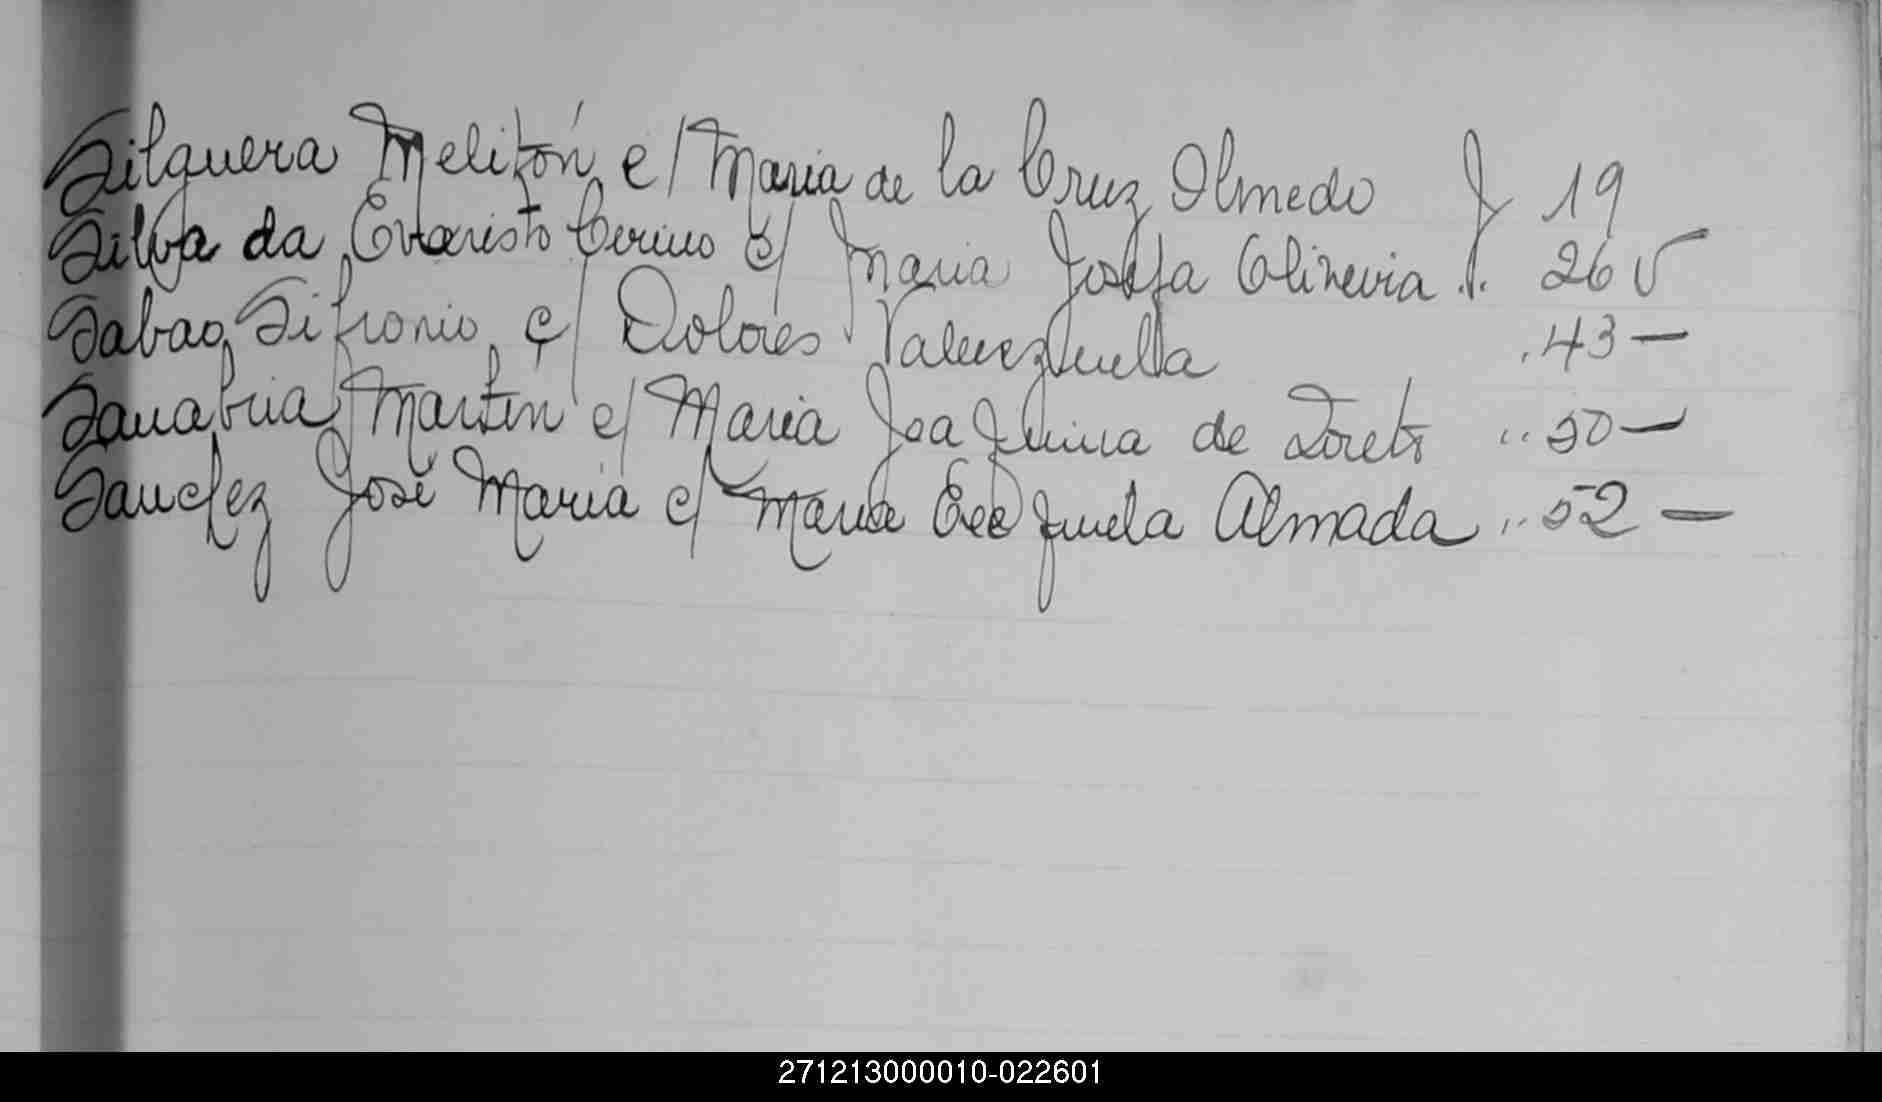 Silguera Melitón c/ Maria de la Cruz Olmedo f 19
Silva da, Evaristo Cerino c/ Maria Josefa Olineria f. 26 v
Sabao, Sifronio, c/ Dolores Valenzuella .43 —
Sanabria Martin c/ Maria Joaquina de Loreto .. 50 —
Sanchez José Maria c/ Maria Exequiela Almada .. 52 —
271213000010-022601